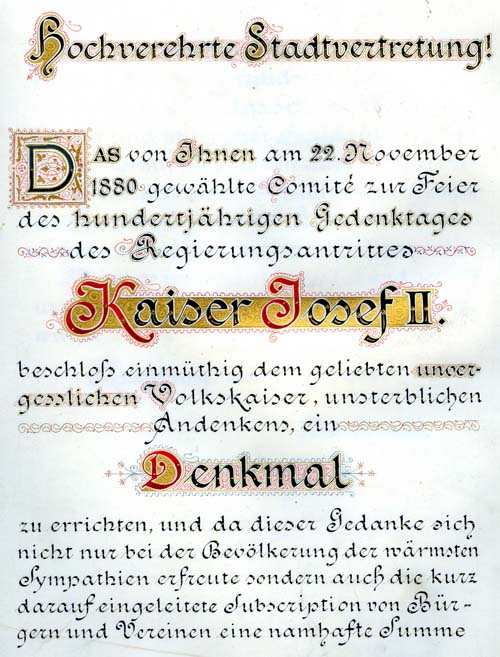 Hochverehrte Stadtvertretung!
DAS von Ihnen am 22. November
1880 gewählte Comité zur Feier
des hundertjährigen Gedenktages
des Regierungsantrittes
Kaiser Josef II.
beschloß einmüthig dem geliebten unver-
gesslichen Volkskaiser, unsterblichen
Andenkens, ein
Denkmal
zu errichten, und da dieser Gedanke sich
nicht nur bei der Bevölkerung der wärmsten
Sympathien erfreute sondern auch die kurz
darauf eingeleitete Subscription von Bür-
gern und Vereinen eine namhafte Summe